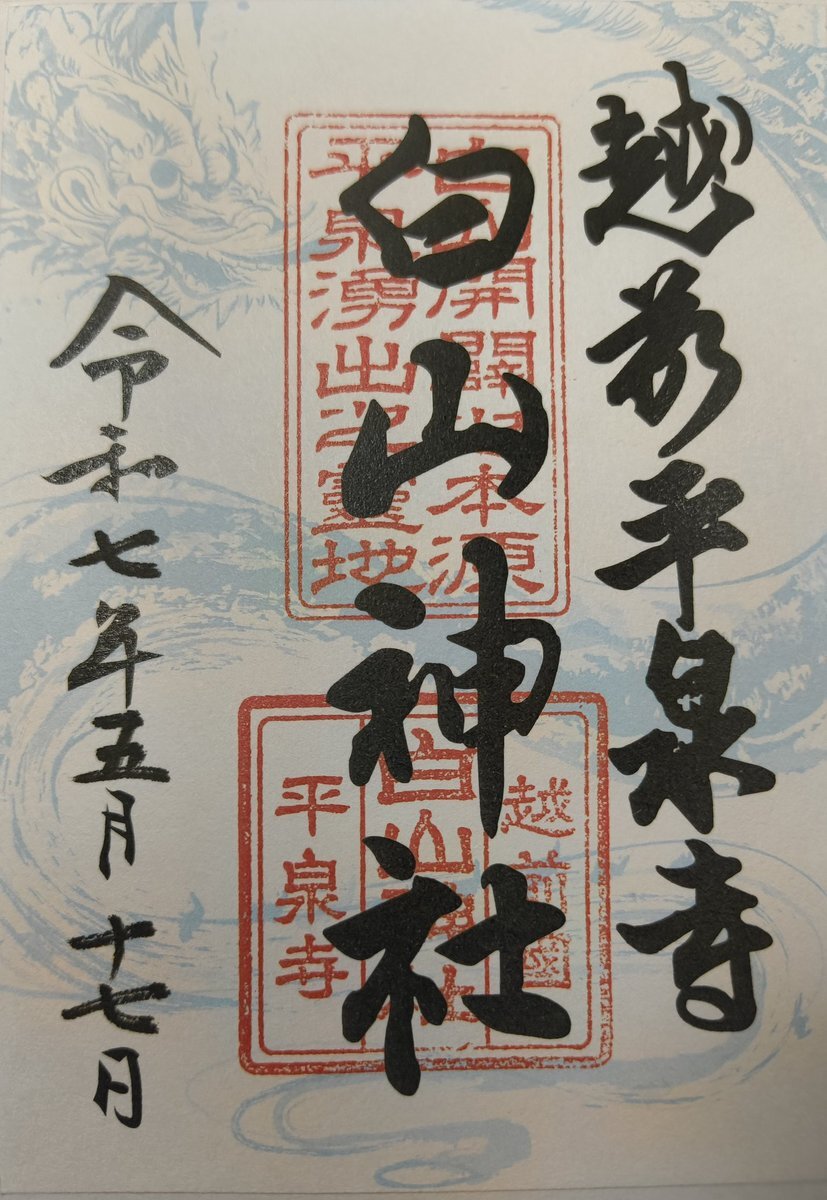 越前平泉寺
白山神社
令和七年五月十七日
白山開闢之本源
平泉湧出之靈地
越前國
白山神社
平泉寺